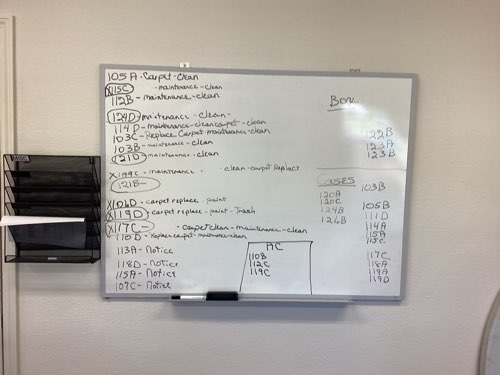 105A - Carpet - Clean
X115C - maintenance - clean
112B - maintenance - clean
124D - maintenance - clean -
114D - maintenance - clean carpet - clean
103C - Replace Carpet - maintenance - clean
103B - maintenance - clean
121D - maintenance - clean
X199C - maintenance - clean - carpet Replace
121B -
X101D - carpet replace paint
X119D - carpet replace - paint - Trash
X117C - - carpet clean - maintenance - clean
110D - Replace carpet - maintenance - clean
113A - Notice
118D - Notice
115A - Notice
107C - Notice
AC
110B
112C
119C
Box
122B
123A
123B
Cases
120A
120C
124B
126B
103B
105B
111D
114A
115A
115C
117C
118A
119A
119D